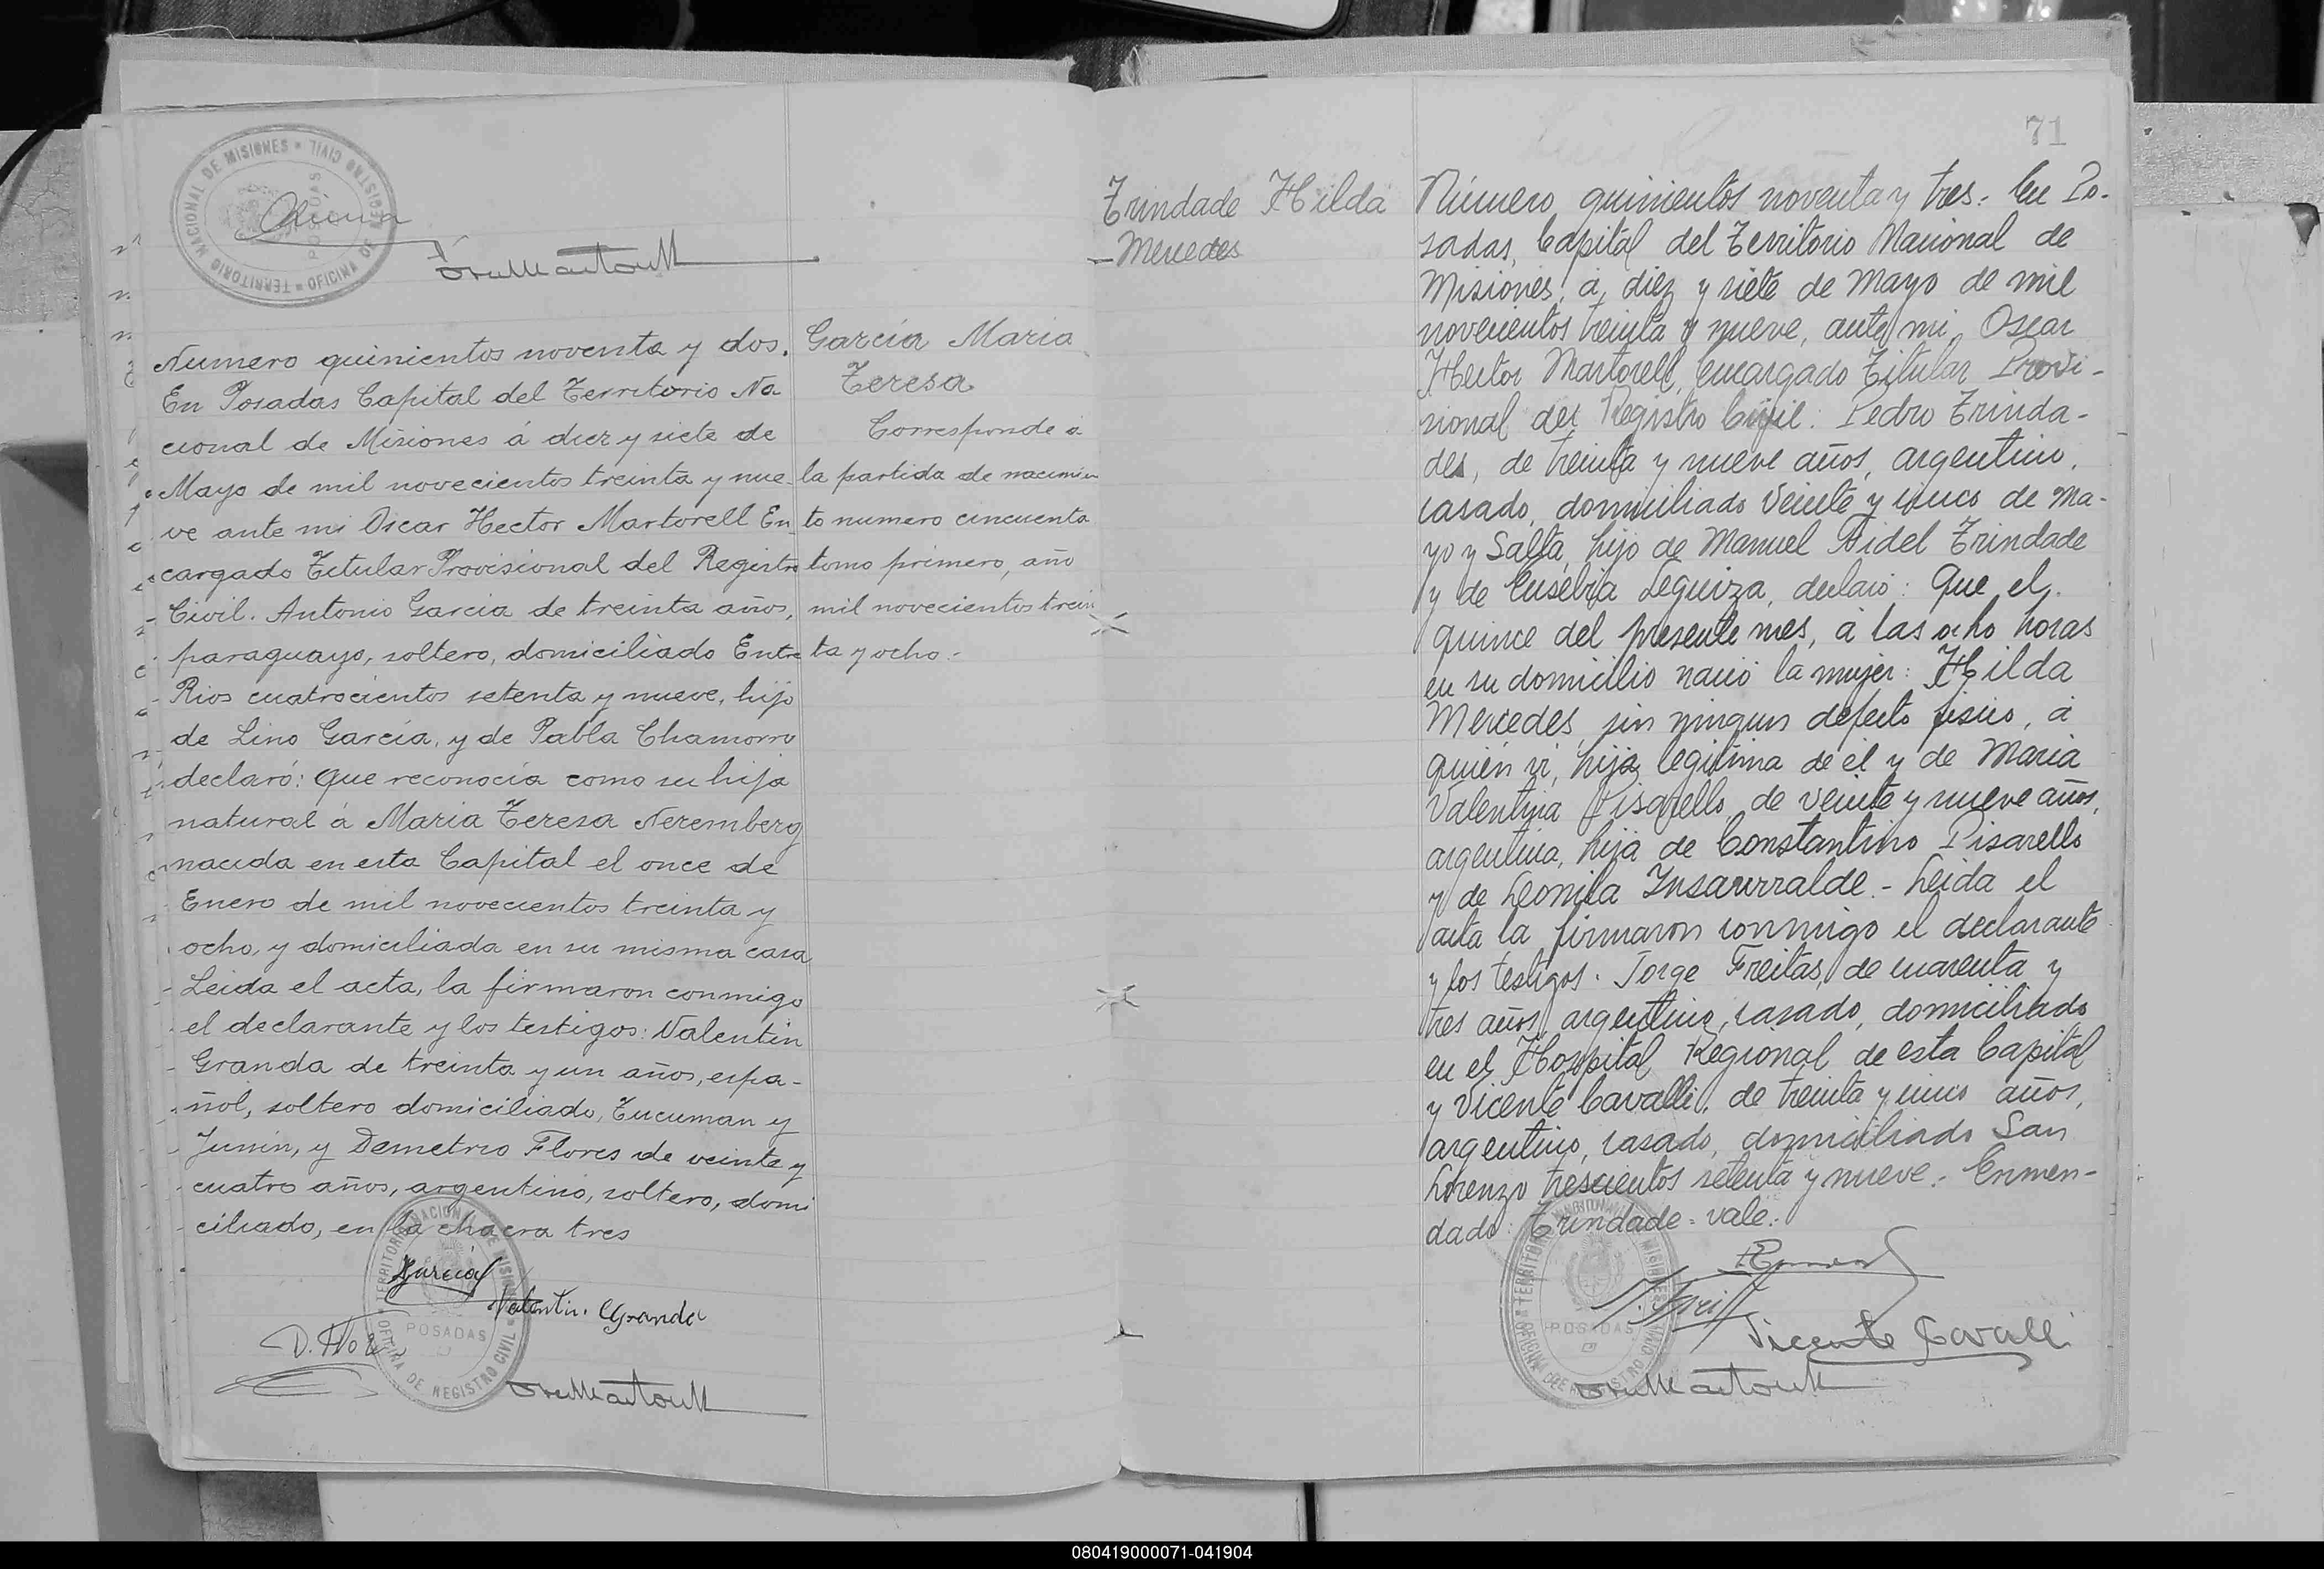 TERRITORIO NACIONAL DE MISIONES
OFICINA DE REGISTRO CIVIL
POSADAS
Numero quinientos noventa y dos.
En Posadas Capital del Territorio Na
cional de Misiones á diez y siete de
Mayo de mil novecientos treinta y nue-
ve ante mi Oscar Hector Martorell En
cargado Titular Provisional del Registro
Civil. Antonio Garcia de treinta años,
paraguayo, soltero, domiciliado Entre
Rios cuatrocientos setenta y nueve, hijo
de Lino García, y de Pabla Chamorro
declaró: Que reconocía como su hija
natural á Maria Teresa Neremberg
nacida en esta Capital el once de
Enero de mil novecientos treinta y
ocho, y domiciliada en su misma casa
Leida el acta, la firmaron conmigo
el declarante y los testigos: Valentin
Granda de treinta y un años, espa-
ñol, soltero domiciliado, Tucuman y
Junin, y Demetrio Flores de veinte y
cuatro años, argentino, soltero, domi
ciliado, en la chacra tres
García Maria
Teresa
Corresponde á
la partida de nacimien
to numero cincuenta
tomo primero, año
mil novecientos trein
ta y ocho.-
AGarcia
Valentin. Granda
D. Flo
TERRITORIO NACIONAL DE MISIONES
POSADAS
OFICINA DE REGISTRO CIVIL
71
Trindade Hilda
-Mercedes
Número quinientos noventa y tres.- En Po-
sadas, Capital del Territorio Nacional de
Misiones, á diez y siete de Mayo de mil
novecientos treinta y nueve, ante mi, Oscar
Hector Martorell, encargado Titular Provi-
sional del Registro Civil: Pedro Trinda-
de, de treinta y nueve años, argentino,
casado, domiciliado Veinte y cinco de Ma-
yo y Salta, hijo de Manuel Fidel Trindade
y de Eusebia Leguiza, declaró: Que el
quince del presente mes, á las ocho horas
en su domicilio nació la mujer: Hilda
Mercedes, sin ningun defecto fisico, á
quién vi, hija legitima de él y de Maria
Valentina Pisarello, de veinte y nueve años,
argentina, hija de Constantino Pisarello
y de Leonila Insaurralde.- Leida el
acta la firmaron conmigo el declarante
y los testigos: Jorge Freitas, de cuarenta y
tres años, argentino, casado, domiciliado
en el Hospital Regional de esta Capital
y Vicente Cavalli, de treinta y cinco años,
argentino, casado, domiciliado San
Lorenzo trescientos setenta y nueve.- Enmen-
dado: Trindade = vale.-
Vicente Cavalli
TERRITORIO NACIONAL DE MISIONES
POSADAS
OFICINA DE REGISTRO CIVIL
080419000071-041904